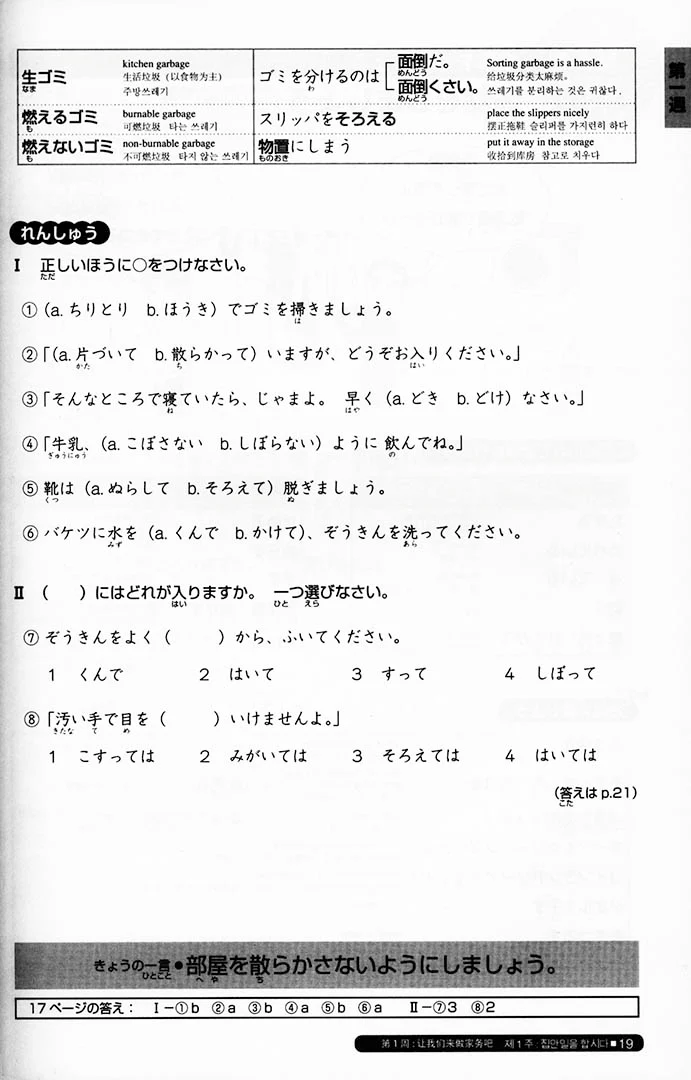 生ゴミ
なま
kitchen garbage
生活垃圾（以食物为主）
주방쓰레기
ゴミを分けるのは
わ
面倒だ。
めんどう
面倒くさい。
めんどう
Sorting garbage is a hassle.
给垃圾分类太麻烦。
쓰레기를 분리하는 것은 귀찮다.
燃えるゴミ
も
burnable garbage
可燃垃圾 타는 쓰레기
スリッパをそろえる
place the slippers nicely
摆正拖鞋 슬리퍼를 가지런히 하다
燃えないゴミ
も
non-burnable garbage
不可燃垃圾 타지 않는 쓰레기
物置にしまう
ものおき
put it away in the storage
收拾到库房 창고로 치우다
第一週
れんしゅう
Ⅰ 正しいほうに○をつけなさい。
ただ
①（a. ちりとり b. ほうき）でゴミを掃きましょう。
は
②「（a. 片づいて b. 散らかって）いますが、どうぞお入りください。」
かた ち はい
③「そんなところで寝ていたら、じゃまよ。 早く（a. どき b. どけ）なさい。」
ね はや
④「牛乳、（a. こぼさない b. しぼらない）ように 飲んでね。」
ぎゅうにゅう の
⑤ 靴は（a. ぬらして b. そろえて）脱ぎましょう。
くつ ぬ
⑥ バケツに水を（a. くんで b. かけて）、ぞうきんを洗ってください。
みず あら
Ⅱ （ ）にはどれが入りますか。 一つ選びなさい。
はい ひと えら
⑦ ぞうきんをよく（ ）から、ふいてください。
1 くんで 2 はいて 3 すって 4 しぼって
⑧「汚い手で目を（ ）いけませんよ。」
きたな て め
1 こすっては 2 みがいては 3 そろえては 4 はいては
（答えは p.21）
こた
きょうの一言●部屋を散らかさないようにしましょう。
ひとこと へや ち
17ページの答え： Ⅰ－①b ②a ③b ④a ⑤b ⑥a Ⅱ－⑦3 ⑧2
第1周：让我们来做家务吧 제1주：집안일을 합시다■19